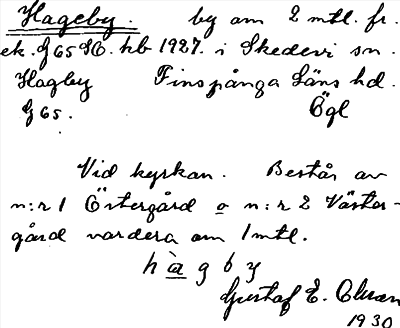 Hageby. by om 2 mtl. fr.
ek. G 65 SO. hb 1927. i Skedevi sn.
Hagby Finspånga Läns hd.
G 65. Ögl
Vid kyrkan. Består av
n:r 1 Östergård o n:r 2 Väster-
gård vardera om 1 mtl.
hàgby
Gustaf E.
1930